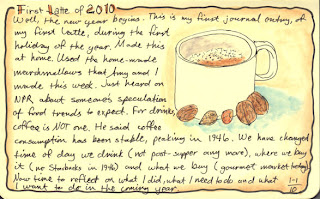 First Latte of 2010
Well, the new year begins. This is my first journal entry, of
my first Latte, during the first
holiday of the year. Made this
at home. Used the home-made
marshmallows that Amy and I
made this week. Just heard on
NPR about someone's speculation
of food trends to expect. For drinks,
coffee is NOT one. He said coffee
consumption has been stable, peaking in 1946. We have changed
time of day we drink (not post-supper any more), where we buy
it (no Starbucks in 1946) and what we buy (gourmet market today)
Now time to reflect on what I did, what I need to do and what
I want to do in the coming year.
1-1
10